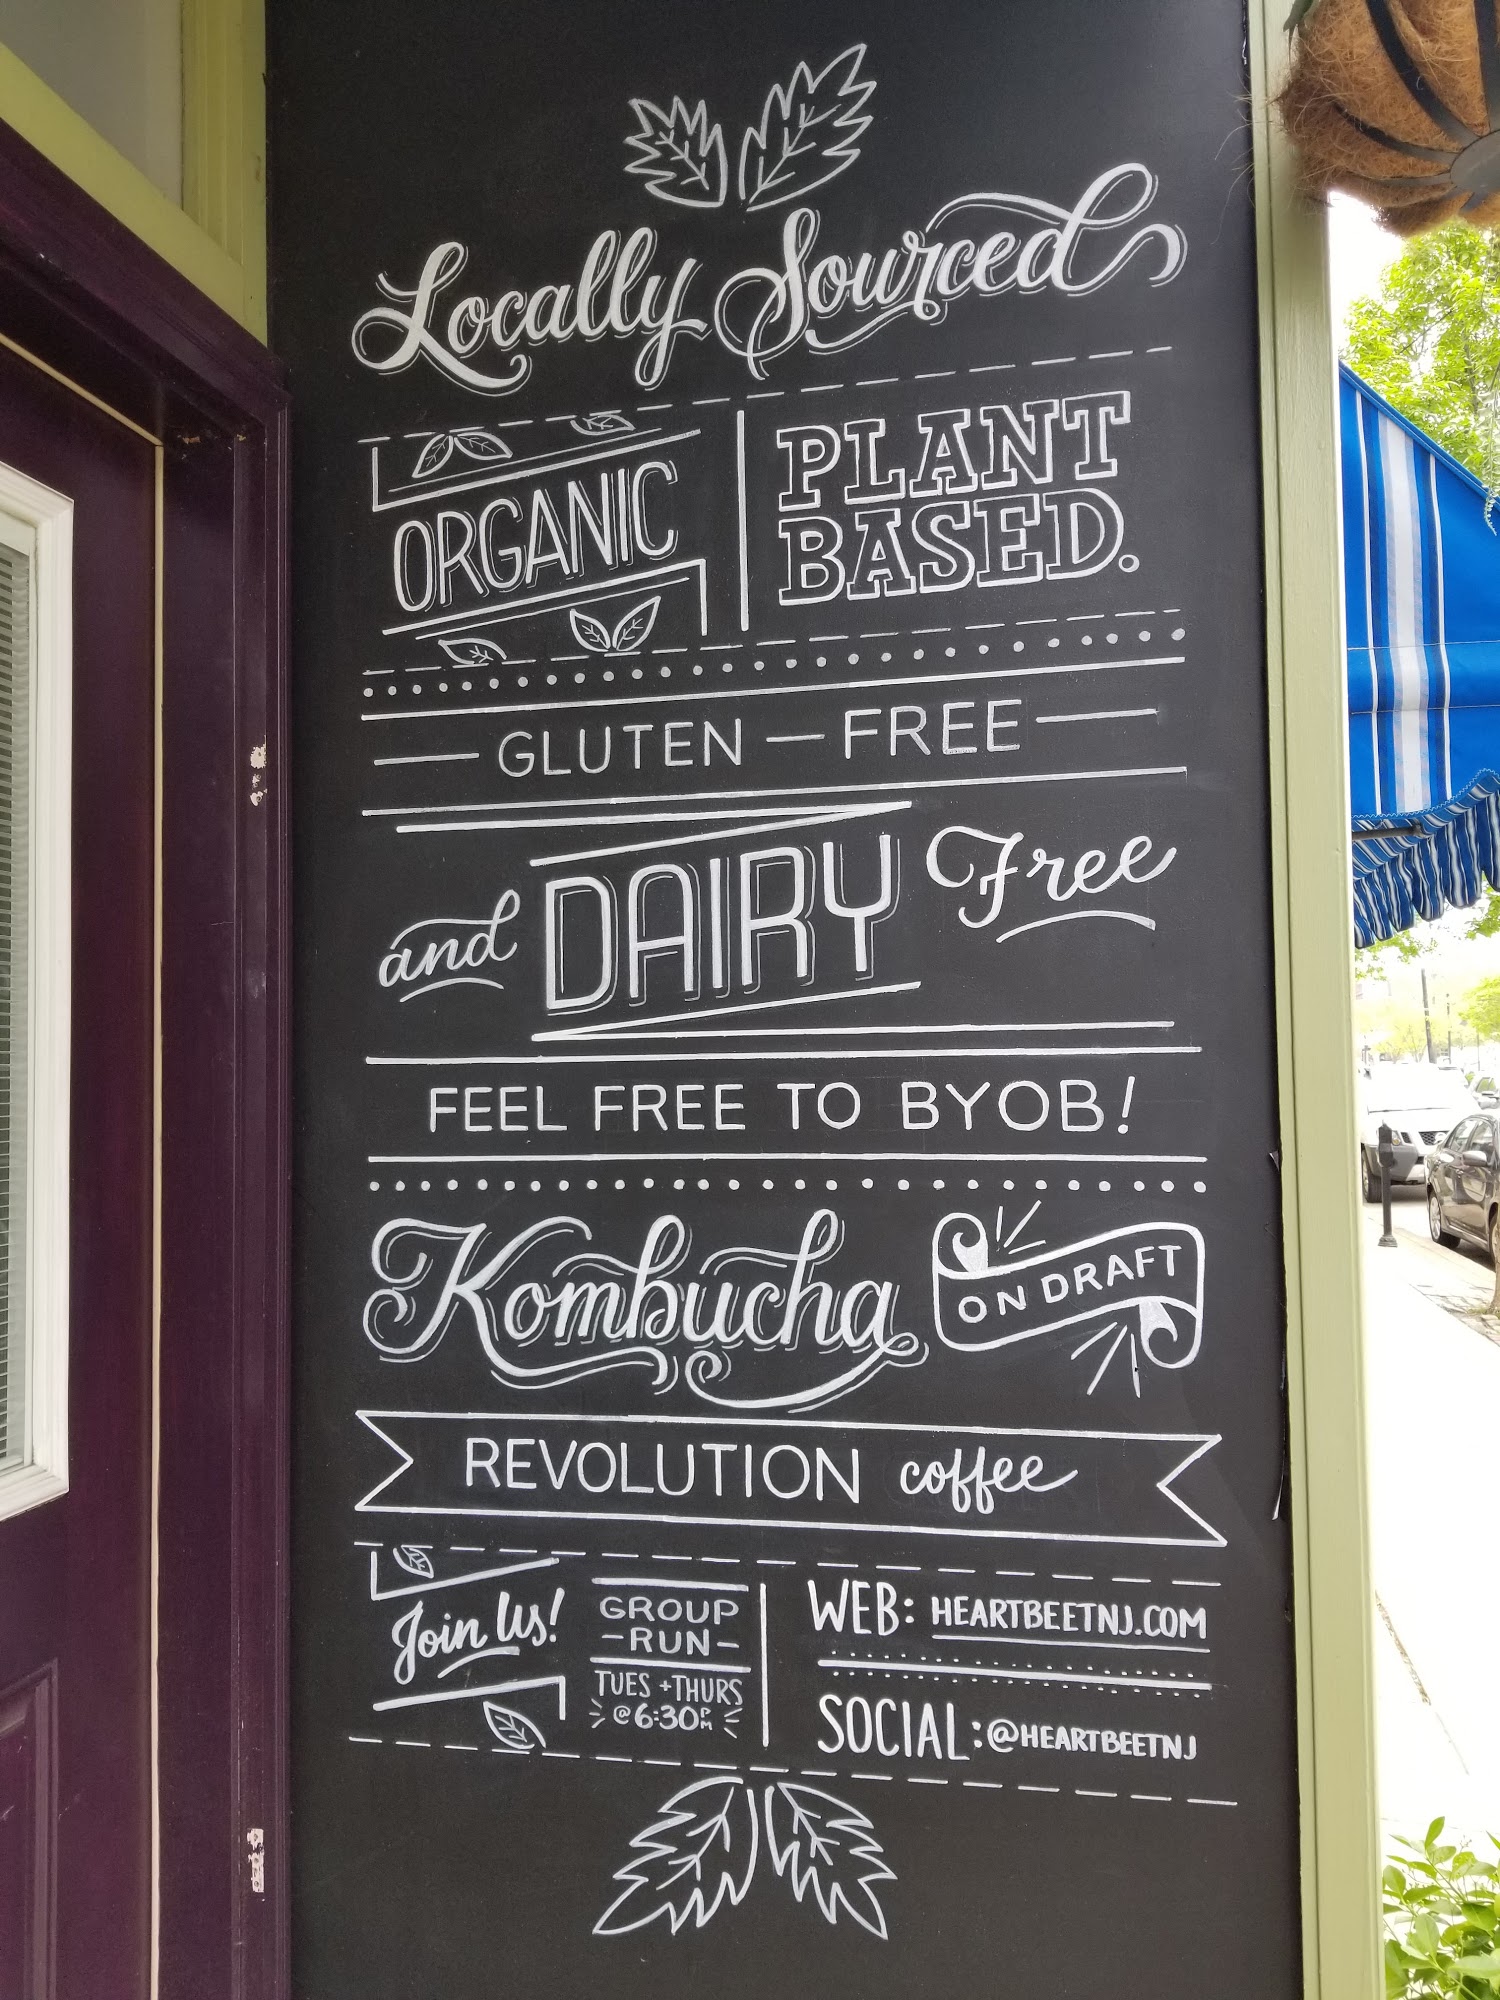 Locally Sourced
ORGANIC
PLANT
BASED.
GLUTEN — FREE
and DAIRY Free
FEEL FREE TO BYOB!
Kombucha ON DRAFT
REVOLUTION coffee
Join Us!
GROUP
-RUN-
TUES + THURS
@ 6:30 PM
WEB: HEARTBEETNJ.COM
SOCIAL: @HEARTBEETNJ